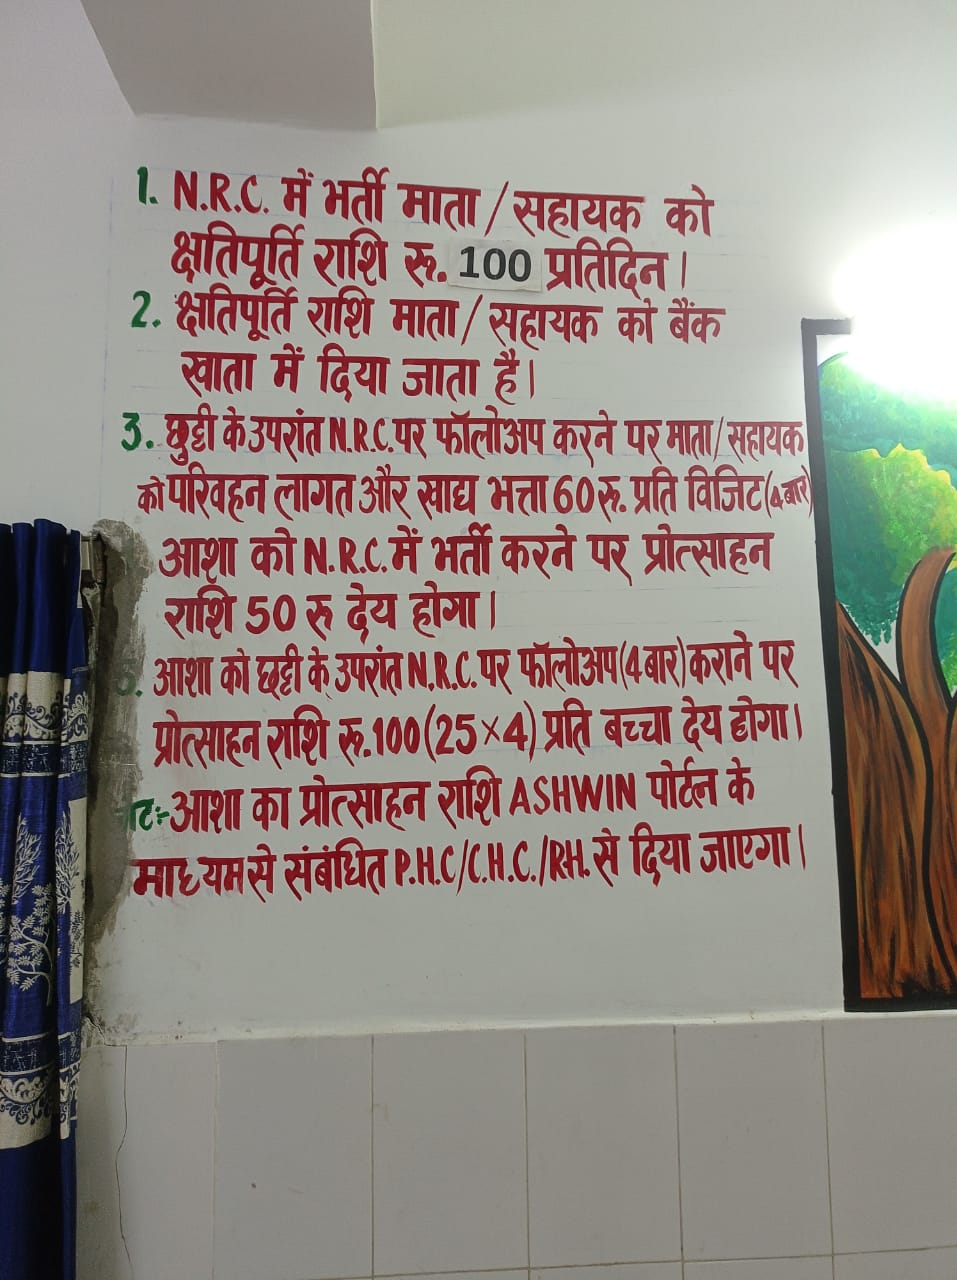 1. N.R.C. में भर्ती माता/सहायक को
क्षतिपूर्ति राशि रू. 100 प्रतिदिन।
2. क्षतिपूर्ति राशि माता/सहायक को बैंक
खाता में दिया जाता है।
3. छुट्टी के उपरांत N.R.C. पर फॉलोअप करने पर माता/सहायक
को परिवहन लागत और खाद्य भत्ता 60 रू. प्रति विजिट (4 बार)
आशा को N.R.C. में भर्ती करने पर प्रोत्साहन
राशि 50 रू देय होगा।
5. आशा को छुट्टी के उपरांत N.R.C. पर फॉलोअप (4 बार) कराने पर
प्रोत्साहन राशि रू. 100 (25×4) प्रति बच्चा देय होगा।
आशा का प्रोत्साहन राशि ASHWIN पोर्टल के
माध्यम से संबंधित P.H.C/C.H.C./R.H. से दिया जाएगा।